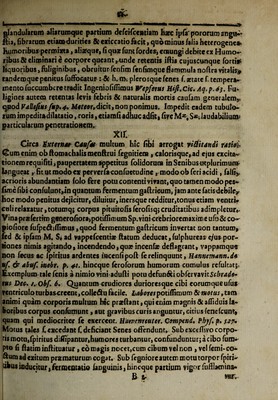 glandularum aliarumque partium defcifcentiam hæc ipſa pororum anguſtia,
fibrarum etiam durities & exſuccio facit, quò minus ſalia heterogenea
humoribus permixta, aliæque, ſi quæ ſunt ſordes, emungi debite ex Humoribus
& eliminari è corpore queant, unde retentis iſtis cujuscunque ſortis
liquoribus, fuliginibus, obruitur ſenſim ſenſimque flammula noſtra vitalis,
tandemque penitus ſuffocatur: & h. m. plerosque ſenes ſ. ætate ſ. temperamento
ſuccumbere tradit Ingenioſiſſimus Wepferus Hiſt. Cic. Aq. p. 63. Fuligines
autem retentas febris & naturalis mortis cauſam generalem,
quod Valleſius ſup. 4. Meteor. dicit, non ponimus. Impedit eadem tubulorum
impedita dilatatio, roris, etiamſi adhuc adſit, ſive M=, S=, laudabilium
particularum penetrationem.
XII.
Circa Externas Cauſas multum hîc ſibi arrogat victitandi ratio.
Cum enim ob ſtomachalis menſtrui ſegnitiem, calorisque, ad ejus excitationem
requiſiti, paupertatem appetitus ſolidorum in Senibus utplurimum
langueat, fit ut modo ex perverſa conſuetudine, modo ob ſeri acidi, ſalſi,
acrioris abundantiam ſolo ferè potu contenti vivant, quo tamen modo peſſimè
ſibi conſulunt, in quantum fermentum gaſtricum, jam ante ſatis debile,
hoc modo penitus dejicitur, diluitur, inersque redditur, tonus etiam ventriculi
relaxatur, totumq; corpus pituinoſis ſeroſisq; cruditatibus adimpletur.
Vina præſertim generoſiora, potiſſimum, Sp. vini crebrior enaxime uſu & copioſiore
ſuſpectiſſimus, quod fermentum gaſtricum invertat non tantum,
ſed & ipſam M, S, ad vappeſcentiæ ſtatum deducat, ſulphureas ejus portiones
nimis agitando, incendendo, quæ incenſæ deflagrant, vappamque
non ſecus ac ſpiritus ardentes incenſi poſt ſe relinquunt, Hannemann. de
uſ. & abuſ. inebr. p. 41. hincque ſeroſorum humorum cumulus reſultat.
Exemplum tale ſenis à nimio vini aduſti potu defuncti obſervavit Schraderus
Dec. 1. Obſ. 6. Quantum crudiores durioresque cibi eorumque uſus
ventriculo turbas creent, collectu facile. Labores potiſſimum & motus, tam
animi quàm corporis multum hîc præſtant, qui etiam magnis & aſſiduis laboribus
corpus conſumunt, aut gravibus curis anguntur, citius ſeneſcunt,
quàm qui mediocriter ſe exercent. Hoevermenter. Compend. Phyſ. p. 127.
Motus tales ſ. excedant ſ. deficiant Senes offendunt. Sub exceſſivo corporis
motu, ſpiritus diſſipantur, humores turbantur, confunduntur; à cibo ſumpto
ſi ſtatim inſtituatur, eò magis nocet, cum cibum vel non, vel ſemi-coctum
ad exitum præmaturum cogat. Sub ſegniore autem motu torpor ſpiritibus
inducitur, fermentatio ſanguinis, hincque partium vigor ſufflaminatur.